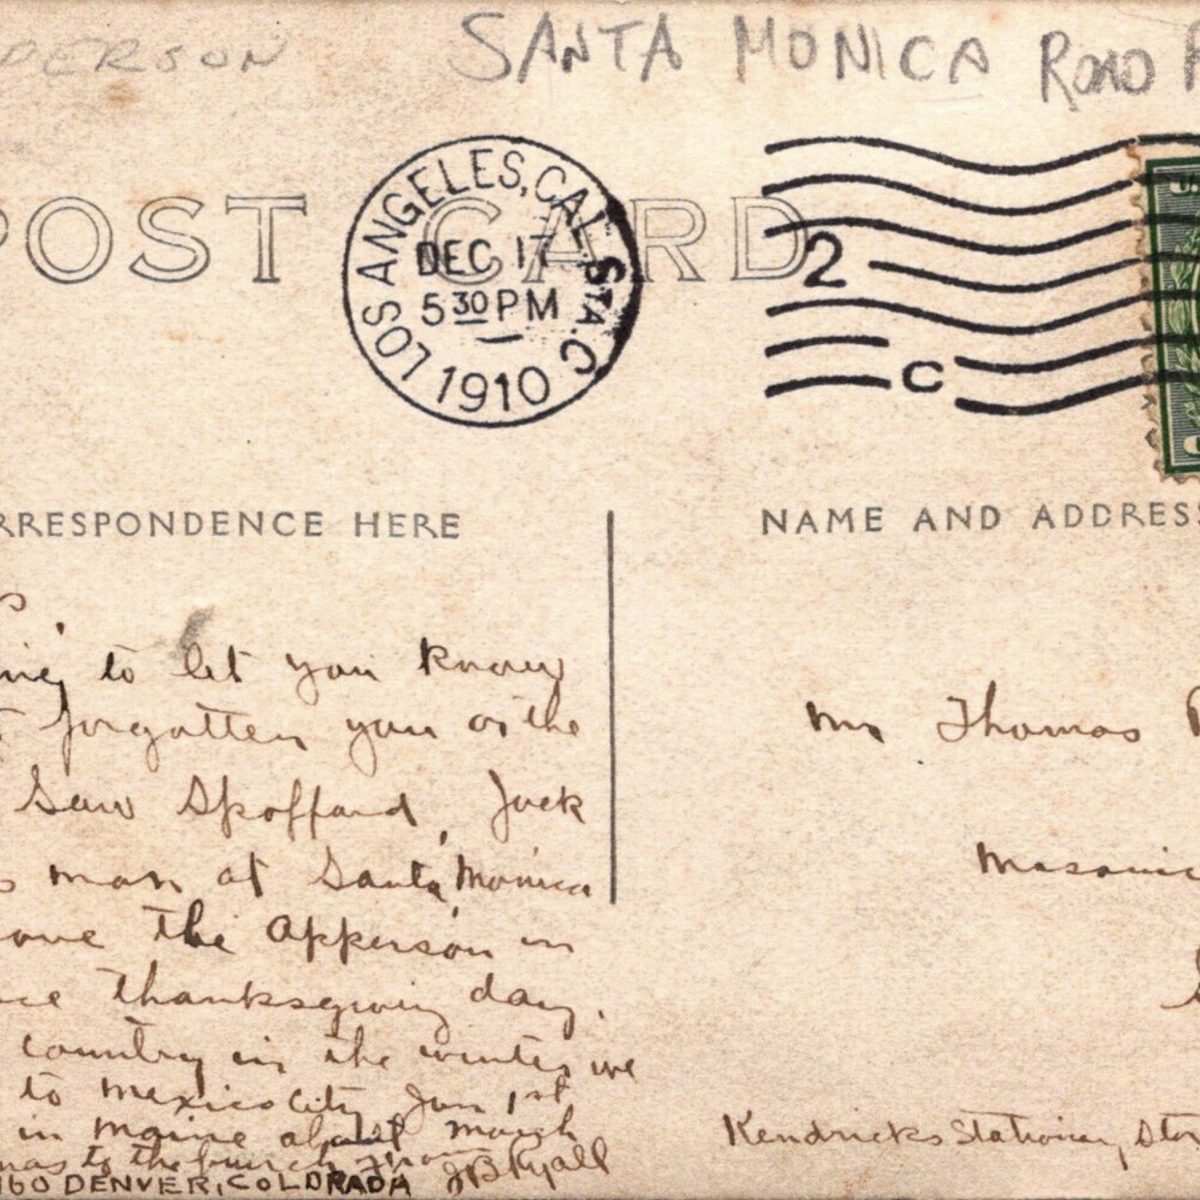 PERSON SANTA MONICA ROAD
POST CARD
LOS ANGELES, CAL. STA. C.
DEC 17
5 30 PM
1910
2
C
RRESPONDENCE HERE
NAME AND ADDRES
to let you know
forgotten you or the
Saw Spofford, Jack
man at Santa Monica
the Apperson in
thanksgiving day.
country in the winter we
to Mexico City Jan 1st
in Maine about March
to the bunch from JB Ryall
160 DENVER, COLORADA
Mr Thomas
Masonic
Kendricks Stationery Stor